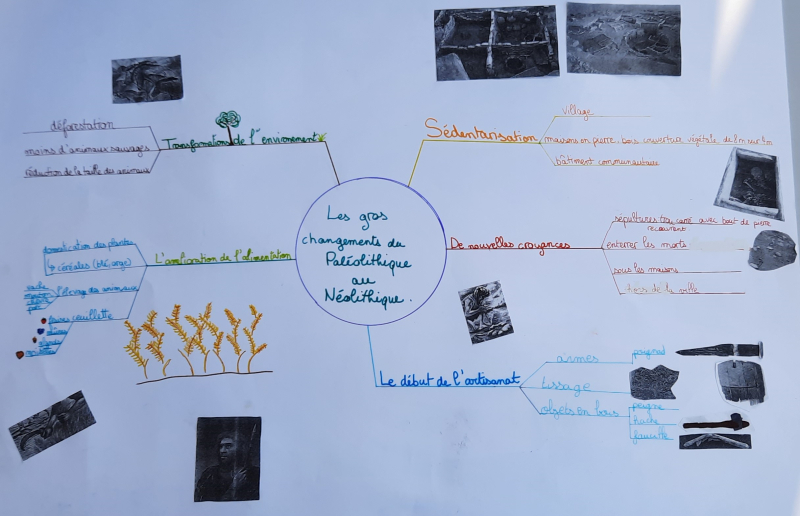 Les gros
changements du
Paléolithique
au
Néolithique.
Transformations de l'environement
déforestation
moins d'animaux sauvages
réduction de la taille des animaux
Sédentarisation
village
maisons en pierre, bois couverture végétale de 8m sur 4m
bâtiment communautaire
De nouvelles croyances
sépultures trou carré avec bout de pierre
recouvrant
enterrer les morts
sous les maisons
hors de la ville
Le début de l'artisanat
armes
poignard
tissage
objets en bois
peigne
hache
faucille
L'amélioration de l'alimentation
domestication des plantes
↳ céréales (blé, orge)
l'élevage des animaux
cueillette